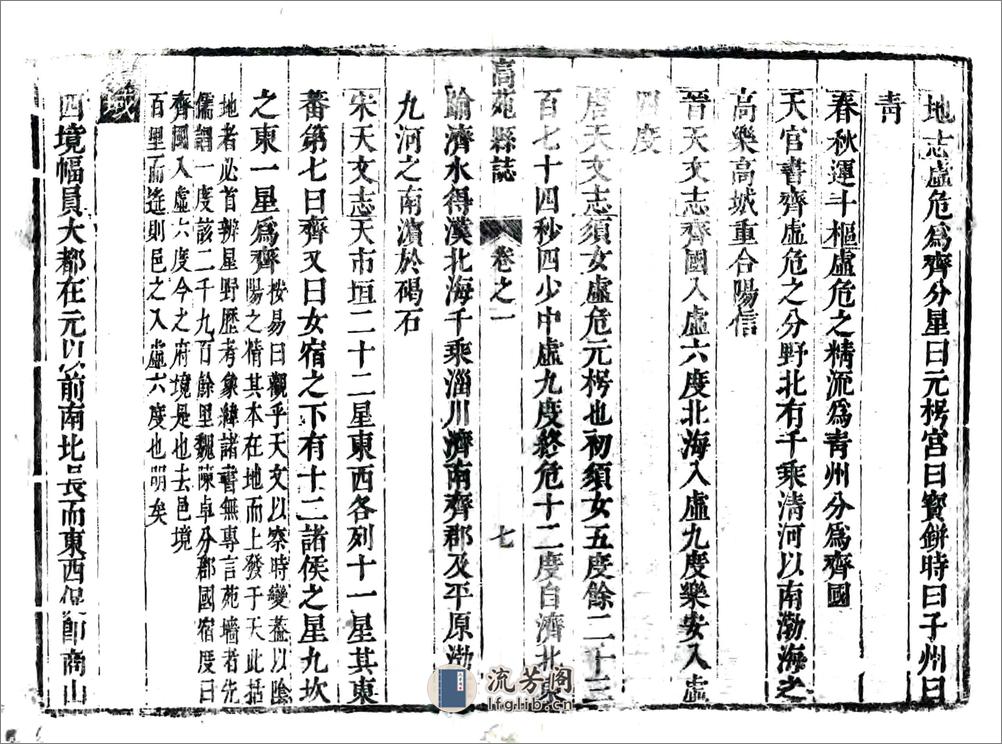 地志虛危爲齊分星曰元枵宮曰寶缾時曰子州曰
青
春秋運斗樞虛危之精流爲青州分爲齊國
天官書齊虛危之分野北有千乘清河以南渤海之
高樂高城重合陽信
晉天文志齊國入虛六度北海入虛九度樂安入虛
四度
唐天文志須女虛危元枵也初須女五度餘二千三
百七十四秒四少中虛九度終危十二度自濟北
高苑縣誌 卷之一 七
踰濟水得漢北海千乘淄川濟南齊郡及平原渤
九河之南濱於碣石
宋天文志天市垣二十二星東西各列十一星其東
蕃第七曰齊又曰女宿之下有十二諸侯之星九坎
之東一星爲齊 按易曰觀乎天文以察時變蓋以陰
陽之精其本在地而上發于天此括
地者必首辨星野歷考象緯諸書無專言苑墻者先
儒謂一度該二千九百餘里魏陳卓分郡國宿度曰
齊國入虛六度今之府境是也去邑境
百里而遙則邑之入虛六度也明矣
域
四境幅員大都在元以前南北長而東西 節商山
流芳阁
lfglib.cn